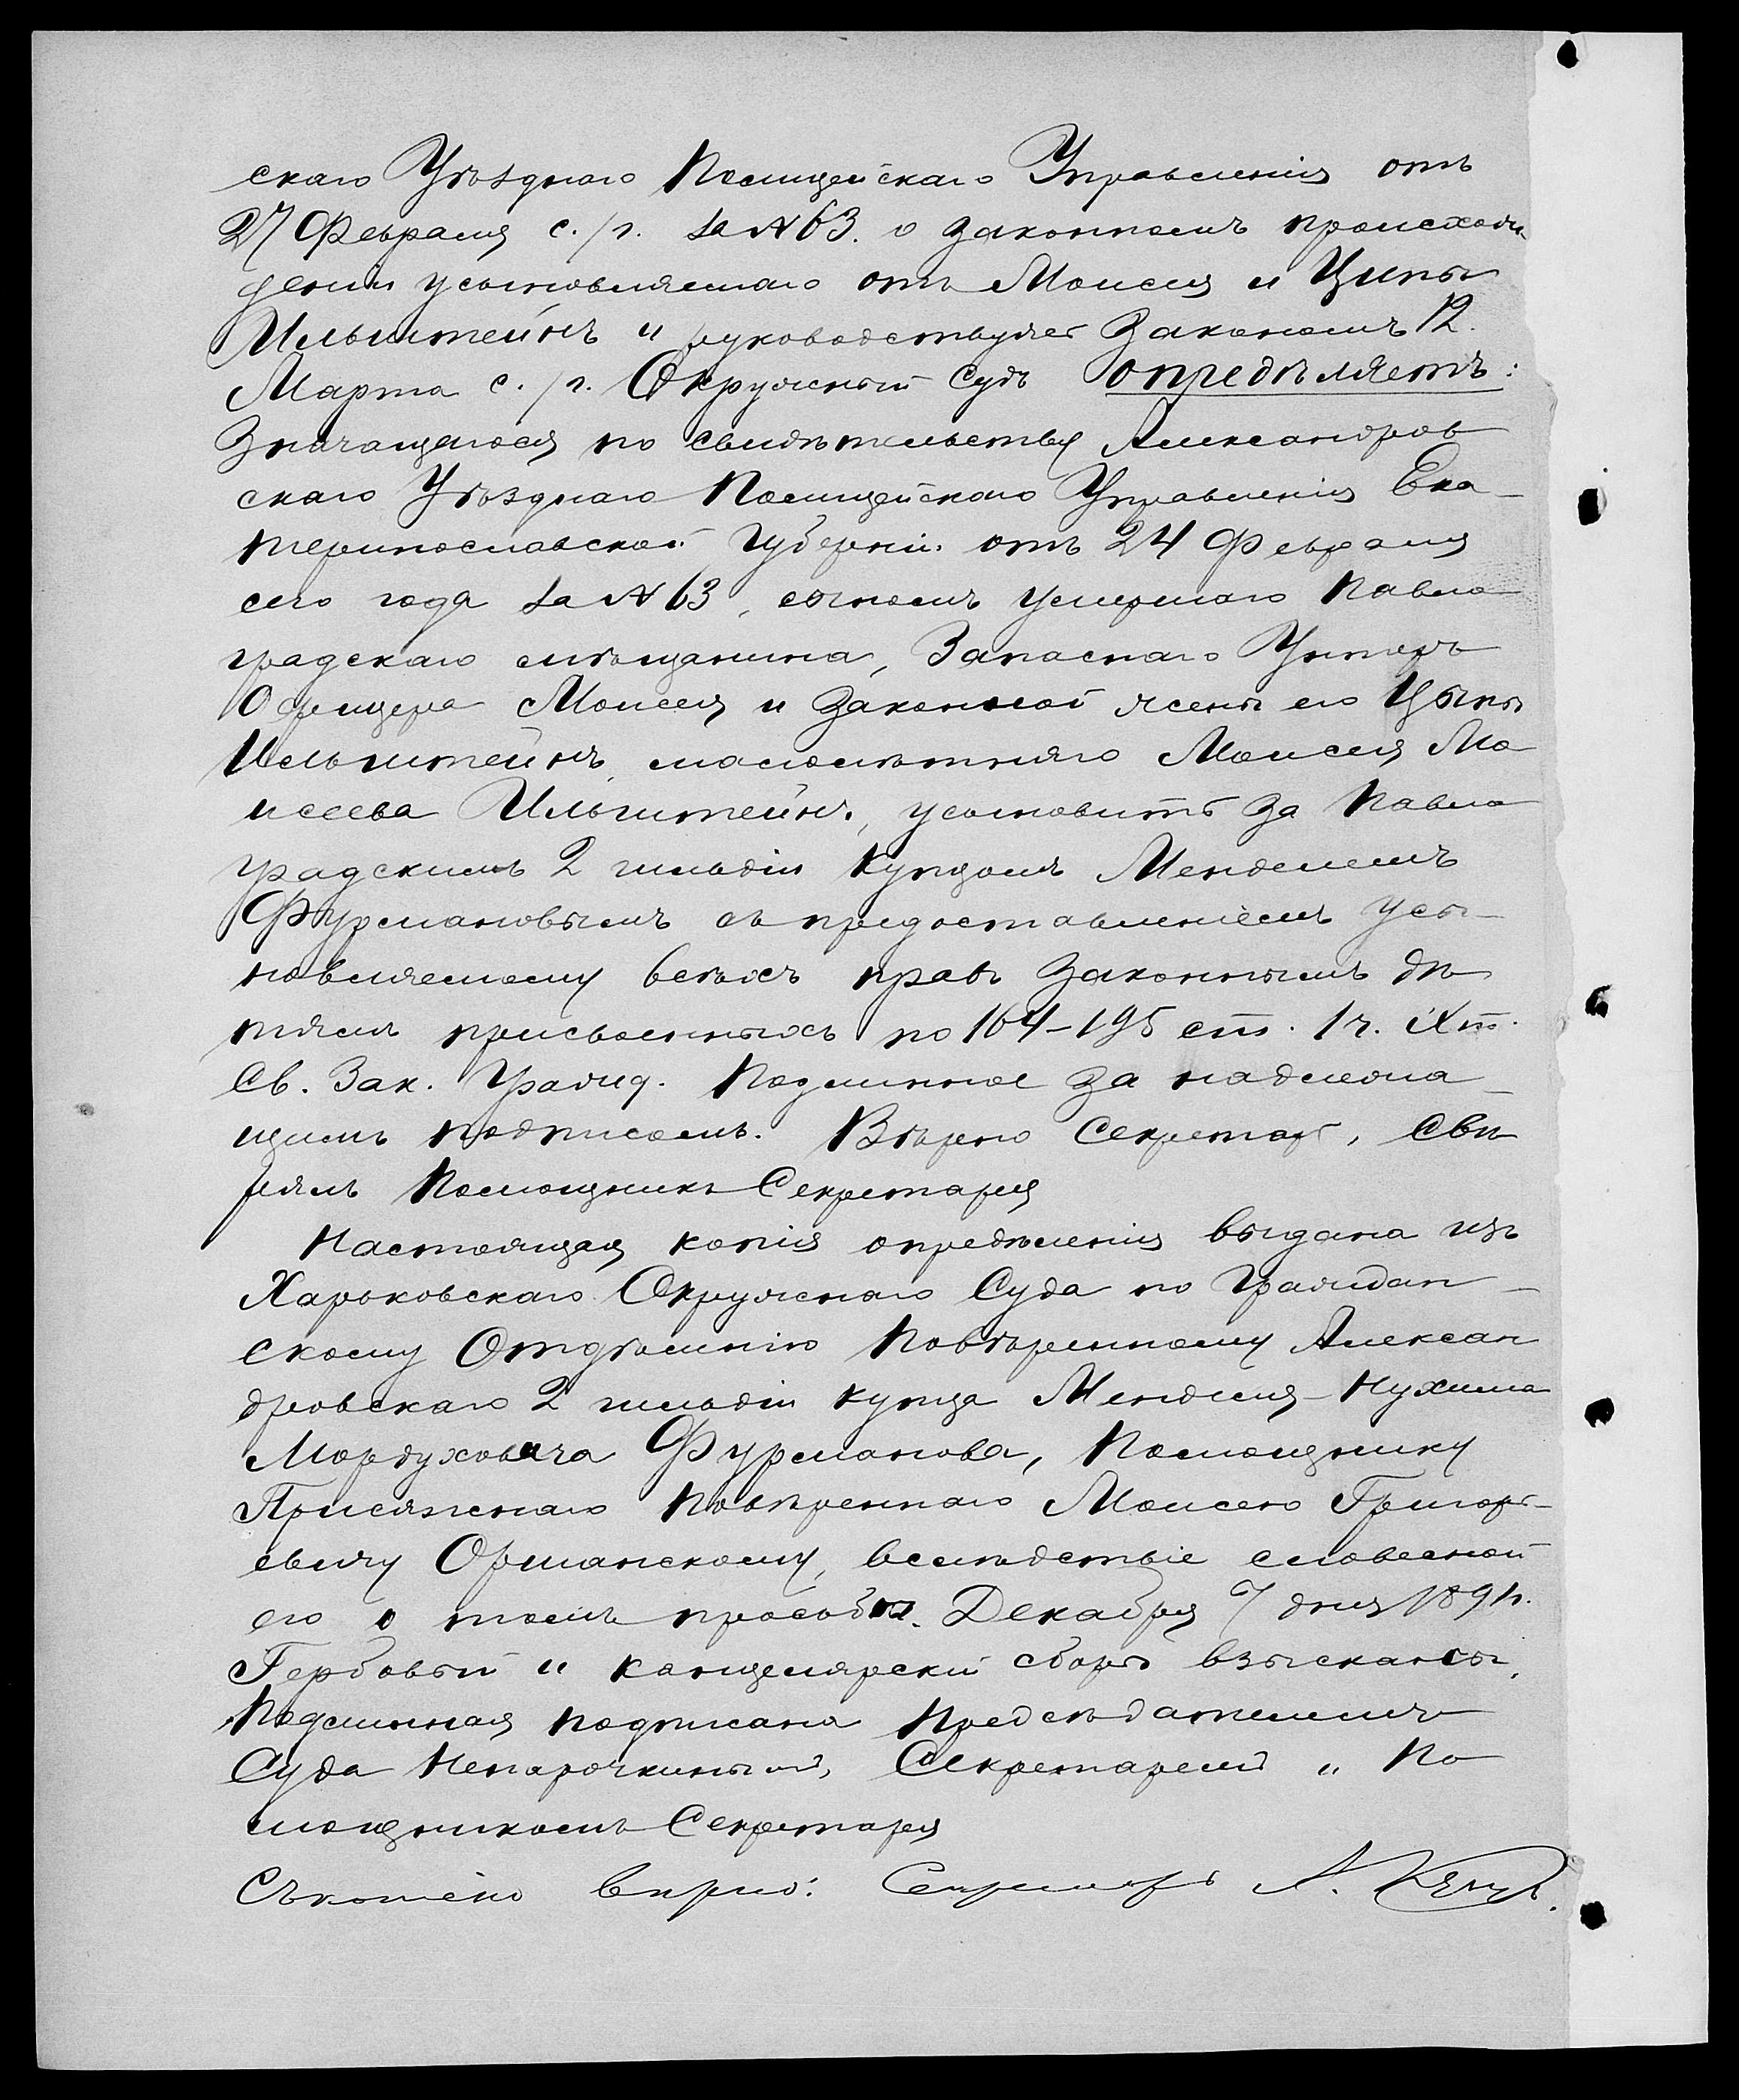 скаго Уѣзднаго Полицейскаго Управленія отъ
27 Февраля с./г. за №63. о законномъ происхож
деніи усыновляемаго отъ Моисея и Ципы
Ильштейнъ и руководствуясь Закономъ 12.
Марта с./г. Окружный Судъ опредѣляетъ:
Значащагося по свидѣтельству Александров
скаго Уѣзднаго Полицейскаго Управленія Ека-
теринославской Губерніи отъ 24 Февраля
сего года за №63, сыномъ умершаго Павло
градскаго мѣщанина, Запаснаго Унтеръ
Офицера Моисея и Законной жены его Цыпы
Ильштейнъ, малолѣтняго Моисея Мо
исеева Ильштейнъ, усыновить за Павло
градскимъ 2 гильдіи Купцомъ Менделемъ
Фурмановымъ съ предоставленіемъ усы-
новляемому всѣхъ правъ Законнымъ дѣ
тямъ присвоенныхъ по 164-195 ст. 1 ч. Х т.
Св. Зак. Гражд. Подлинное за надлежа-
щимъ подписомъ. Вѣрно Секретарь, Свѣ
рялъ Помощникъ Секретаря
Настоящая копія опредѣленія выдана изъ
Харьковскаго Окружнаго Суда по Граждан-
скому Отдѣленію Повѣренному Алексан
дровскаго 2 гильдіи купца Менделя-Нухима
Мордуховича Фурманова, Помощнику
Присяжнаго Повѣреннаго Моисею Григорь-
евичу Оршанскому, вслѣдствіе словесной
его о томъ просьбы. Декабря 7 дня 1891г.
Гербовый и канцелярскій сборъ взысканы.
Подлинная подписана Предсѣдателемъ
Суда Непорочкинымъ, Секретаремъ и По
мощникомъ Секретаря
Съ копіею вѣрно: Секретарь А.